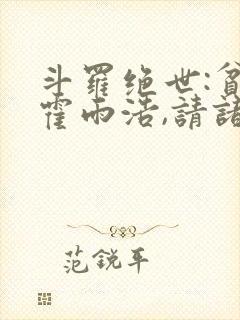 斗羅绝世:貧
霍雨浩,請諸
范銳平